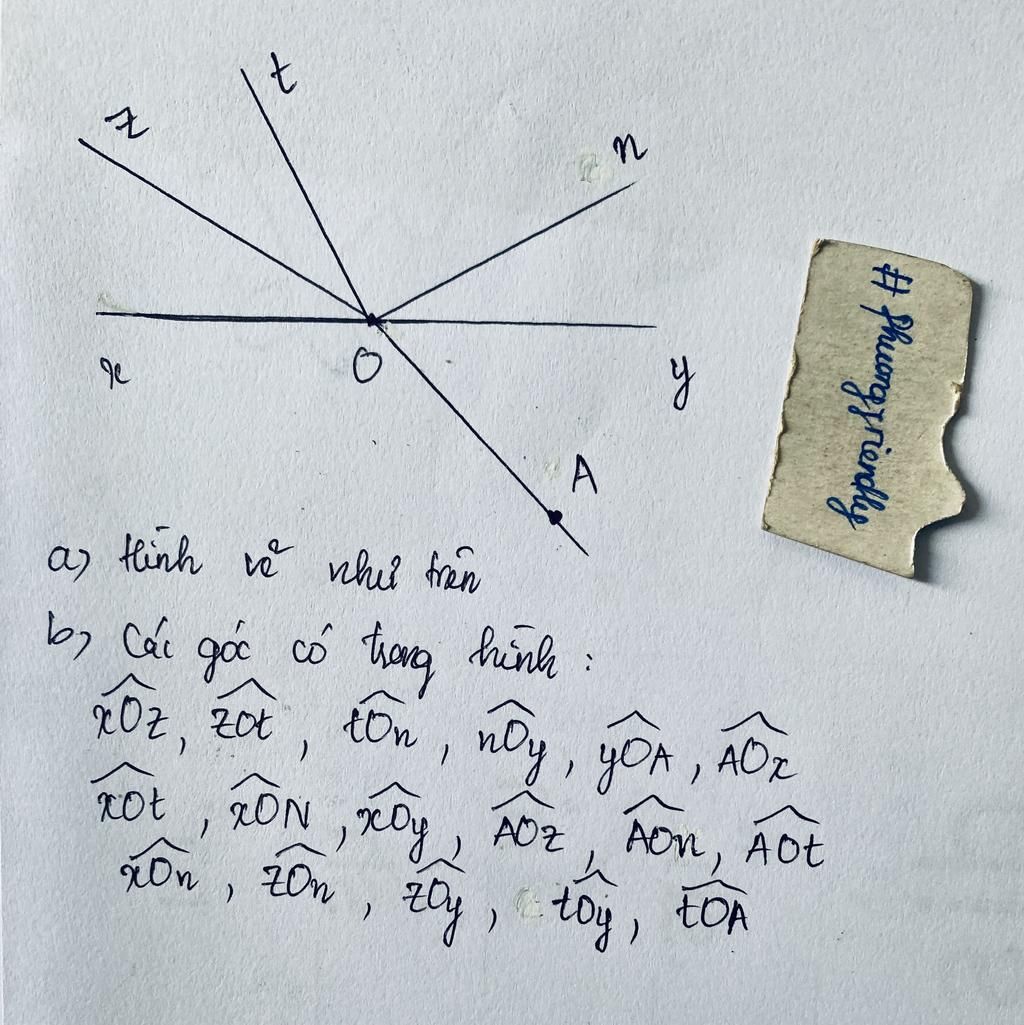 z
t
n
x
O
y
A
#phuongfriendly
a) Hình vẽ như trên
b) Các góc có trong hình:
xOz, zOt, tOn, nOy, yOA, AOx
xOt, xON, xOy, AOz, AOn, AOt
xOn, zOn, zOy, tOy, tOA